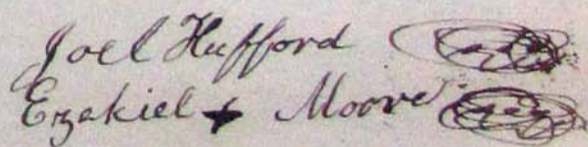 Joel Hufford
Ezekiel Moore